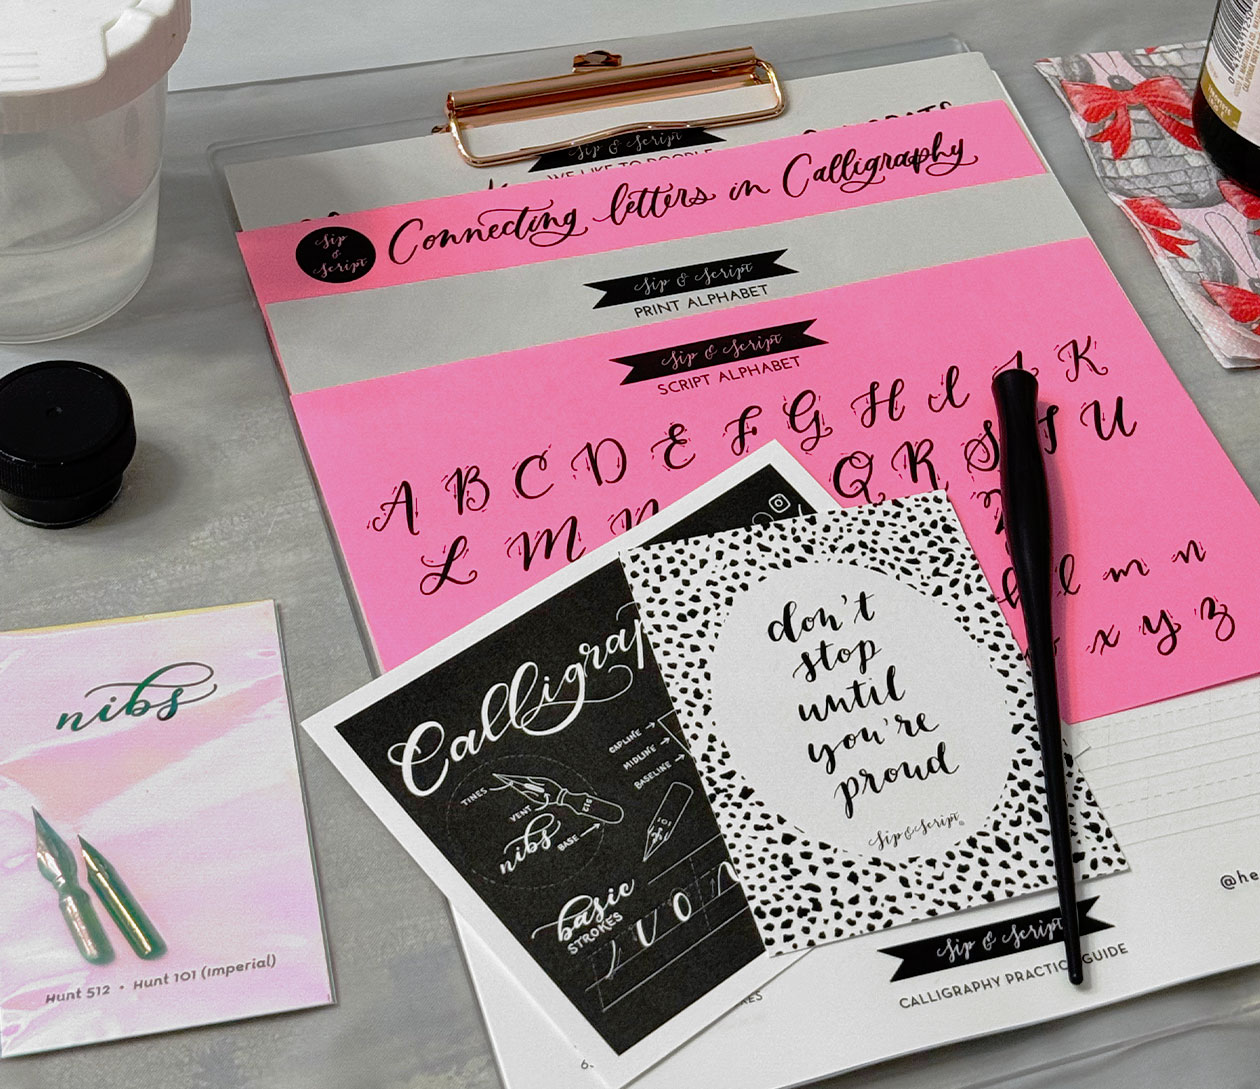 Sip & Script
WE LIKE TO DOODLE
Sip
&
Script
Connecting letters in Calligraphy
Sip & Script
PRINT ALPHABET
Sip & Script
SCRIPT ALPHABET
A B C D E F G H I K
L M N Q R S T U
l m n
x y z
nibs
Hunt 512 • Hunt 101 (Imperial)
CAPLINE
MIDLINE
BASELINE
TINES
VENT
nibs
BASE
basic
STROKES
don't
stop
until
you're
proud
Sip & Script
Sip & Script
CALLIGRAPHY PRACTICE GUIDE